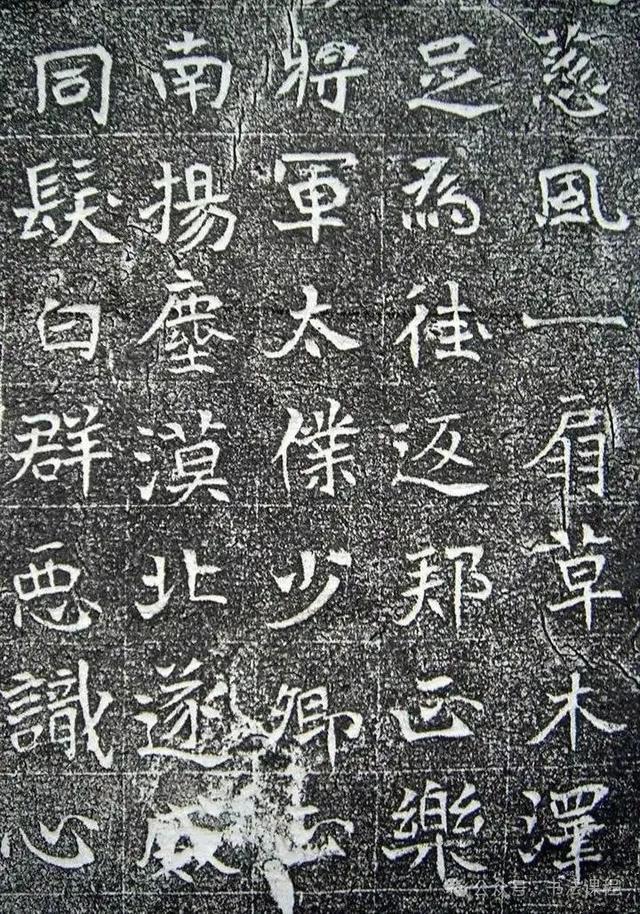 慈風一扇草木澤
足為往返邦正樂
將軍太僕少卿
南揚塵漠北遂威
同髮白群惡識心
公众号 · 书法课程